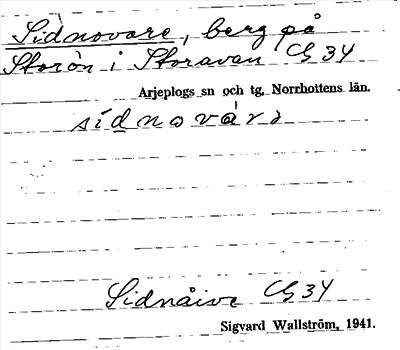 Sidnovare, berg på
Storön i Storavan Cg 34
Arjeplogs sn och tg, Norrbottens län.
sidnovárə
Sidnåive Cg 34
Sigvard Wallström, 1941.